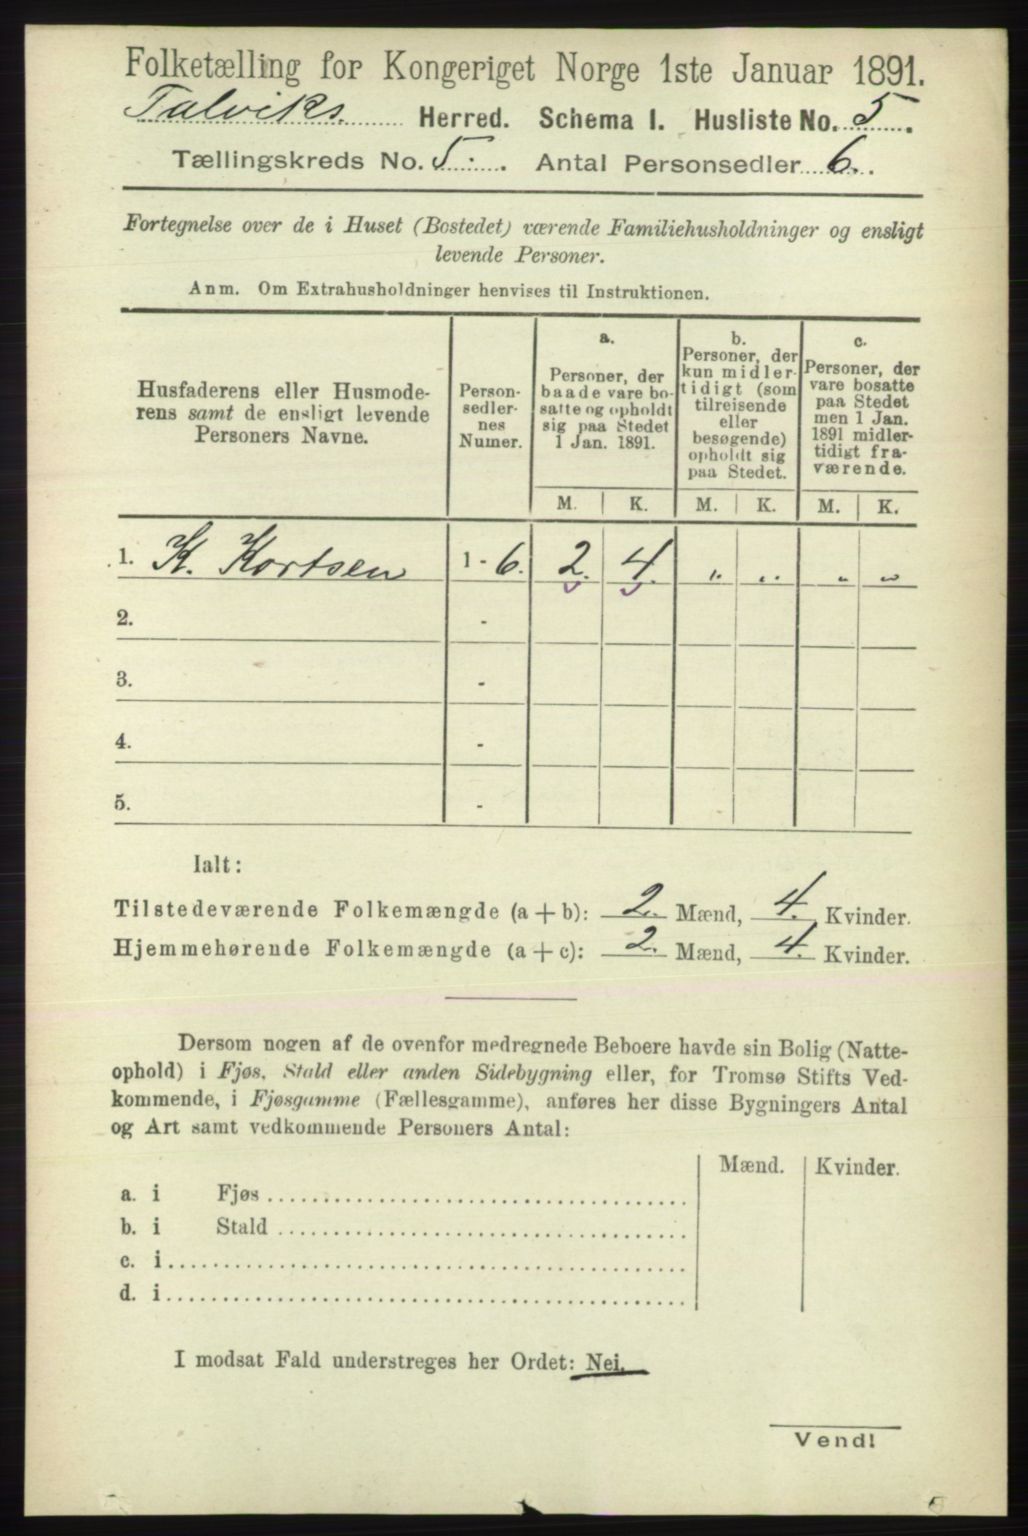 Folketælling for Kongeriget Norge 1ste Januar 1891.
Talviks Herred. Schema I. Husliste No. 5.
Tællingskreds No. 5. Antal Personsedler 6.
Fortegnelse over de i Huset (Bostedet) værende Familiehusholdninger og ensligt
levende Personer.
Anm. Om Extrahusholdninger henvises til Instruktionen.
Husfaderens eller Husmode-
rens samt de ensligt levende
Personers Navne.
Person-
sedler-
nes
Numer.
a.
Personer, der
baade vare bo-
satte og opholdt
sig paa Stedet
1 Jan. 1891.
b.
Personer, der
kun midler-
tidigt (som
tilreisende
eller
besøgende)
opholdt sig
paa Stedet.
c.
Personer, der
vare bosatte
paa Stedet
men 1 Jan.
1891 midler-
tidigt fra-
værende.
M. K. M. K. M. K.
1. K. Kortsen 1 - 6. 2. 4. „ „ „ „
2. -
3. -
4. -
5. -
Ialt:
Tilstedeværende Folkemængde (a + b): 2. Mænd, 4. Kvinder.
Hjemmehørende Folkemængde (a + c): 2. Mænd, 4. Kvinder.
Dersom nogen af de ovenfor medregnede Beboere havde sin Bolig (Natte-
ophold) i Fjøs, Stald eller anden Sidebygning eller, for Tromsø Stifts Ved-
kommende, i Fjøsgamme (Fællesgamme), anføres her disse Bygningers Antal
og Art samt vedkommende Personers Antal:
Mænd. Kvinder.
a. i Fjøs
b. i Stald
c. i
d. i
I modsat Fald understreges her Ordet: Nei.
Vend!